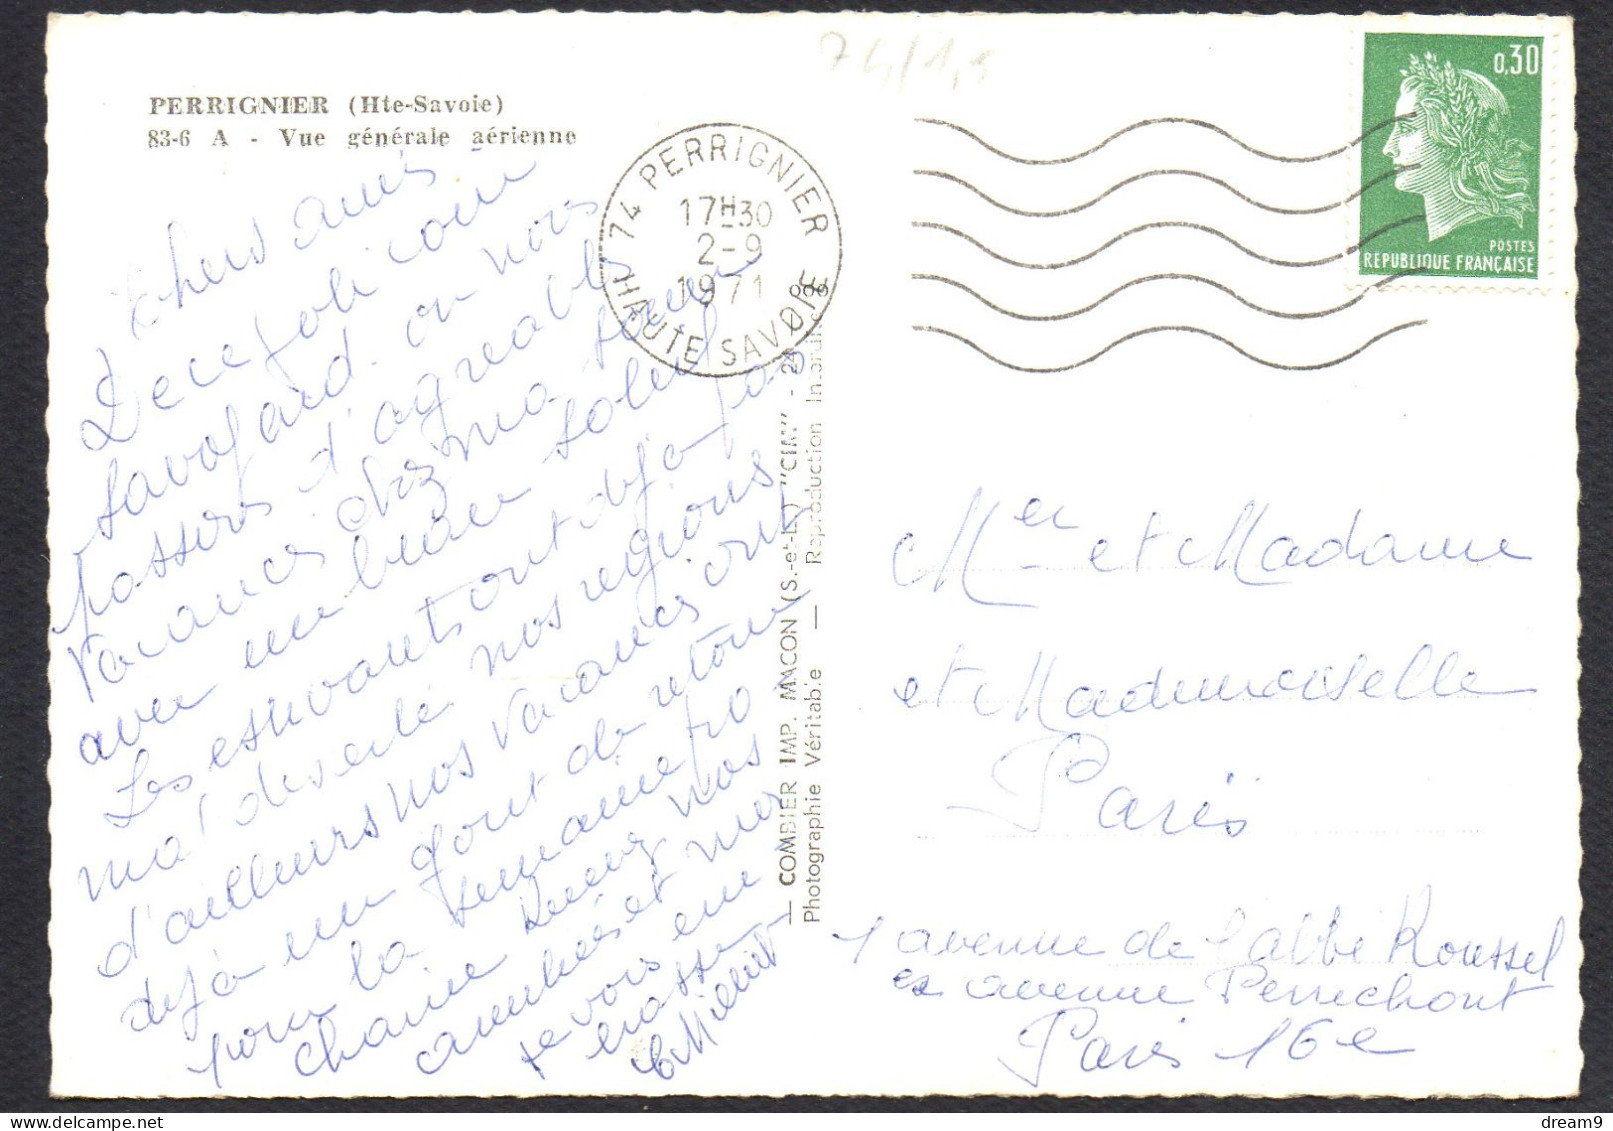 74/1,5
PERRIGNIER (Hte-Savoie)
83-6 A - Vue générale aérienne
74 PERRIGNIER
17H30
2-9
1971
HAUTE SAVOIE
0,30
POSTES
REPUBLIQUE FRANÇAISE
Chers amis
De ce joli coin
savoyard on nous
passons d'agreables
vacances chez ma
avec un beau soleil
Les estivants ont déjà pas
mal deserté nos régions
d'ailleurs nos vacances ont
déjà un gout de retour
pour la semaine pro
chaine Recevez nos
amitiés et moi
je vous em
brasse
— COMBIER IMP. MACON (S.-et-L.) "CIM" -
Photographie Véritable — Reproduction Interdite
Mer et Madame
et Mademoiselle
Paris
1 avenue de l'abbé Roussel
ex avenue Perrichont
Paris 16e
dream9